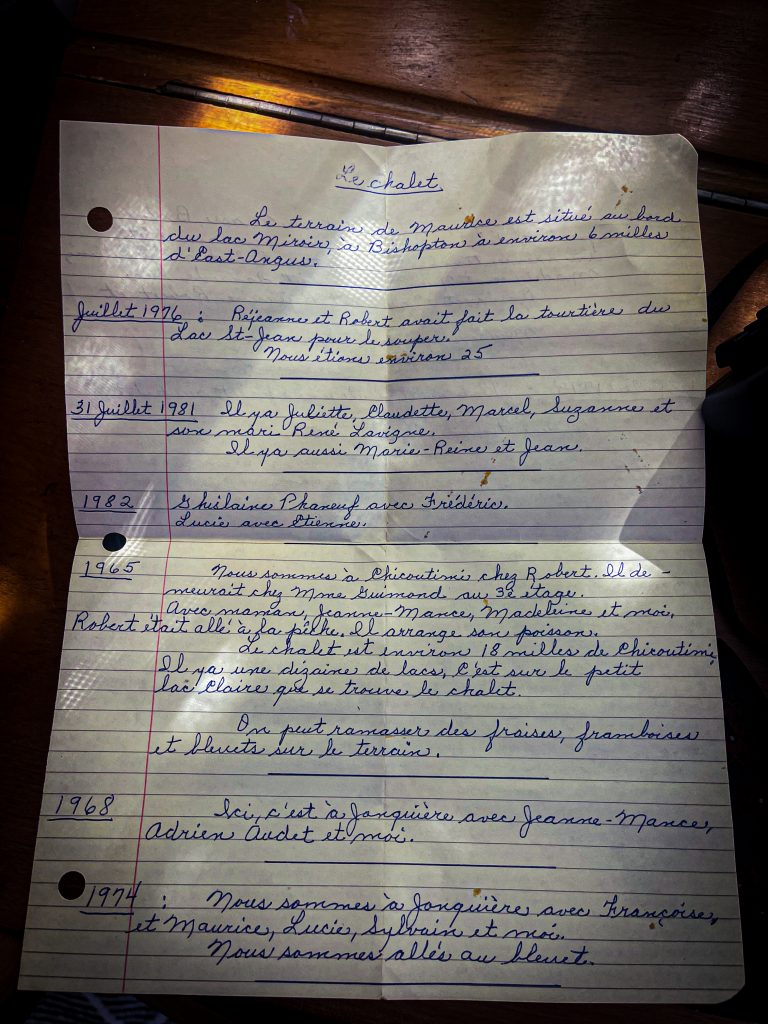 Le chalet.
Le terrain de Maurice est situé au bord
du lac Miroir, à Bishopton à environ 6 milles
d'East-Angus.
Juillet 1976 : Réjeanne et Robert avait fait la tourtière du
Lac St-Jean pour le souper.
Nous étions environ 25
31 Juillet 1981 Il ya Juliette, Claudette, Marcel, Suzanne et
son mari René Lavigne.
Il ya aussi Marie-Reine et Jean.
1982 Ghislaine Phaneuf avec Frédéric.
Lucie avec Etienne.
1965 Nous sommes à Chicoutimi chez Robert. Il de-
meurait chez Mme Guimond au 3e étage.
Avec maman, Jeanne-Mance, Madeleine et moi.
Robert était allé à la pêche. Il arrange son poisson.
Le chalet est environ 18 milles de Chicoutimi,
Il ya une dizaine de lacs, C'est sur le petit
lac Claire que se trouve le chalet.
On peut ramasser des fraises, framboises
et bleuets sur le terrain.
1968 Ici, c'est à Jonquière avec Jeanne-Mance,
Adrien Audet et moi.
1974 : Nous sommes à Jonquière avec Françoise,
et Maurice, Lucie, Sylvain et moi.
Nous sommes allés au bleuet.